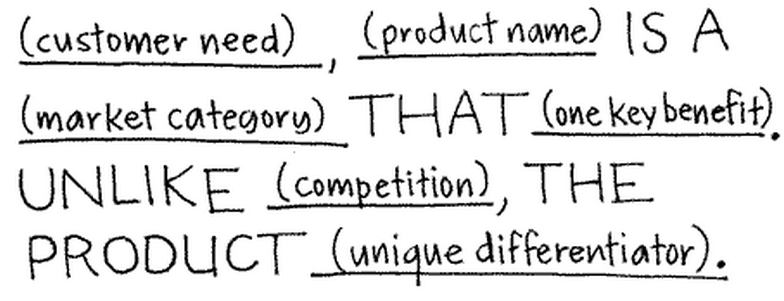 (customer need), (product name) IS A
(market category) THAT (one key benefit).
UNLIKE (competition), THE
PRODUCT (unique differentiator).